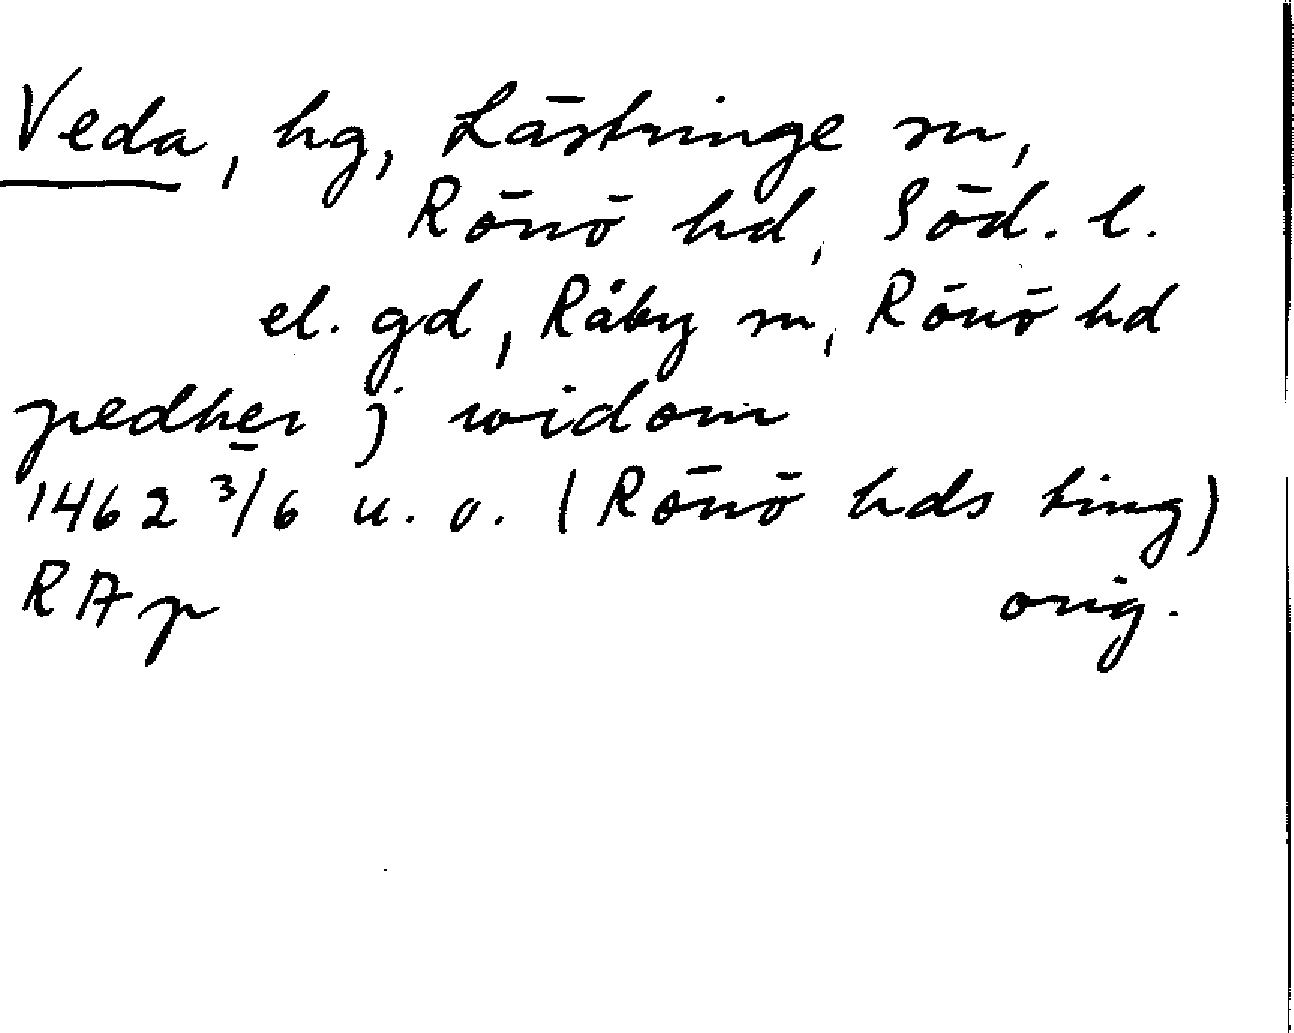 Veda, hg, Lästringe sn,
Rönö hd, Söd. l.
el. gd, Råby sn, Rönö hd
pedher j widom
1462 3/6 u. o. (Rönö hds ting)
RAp orig.